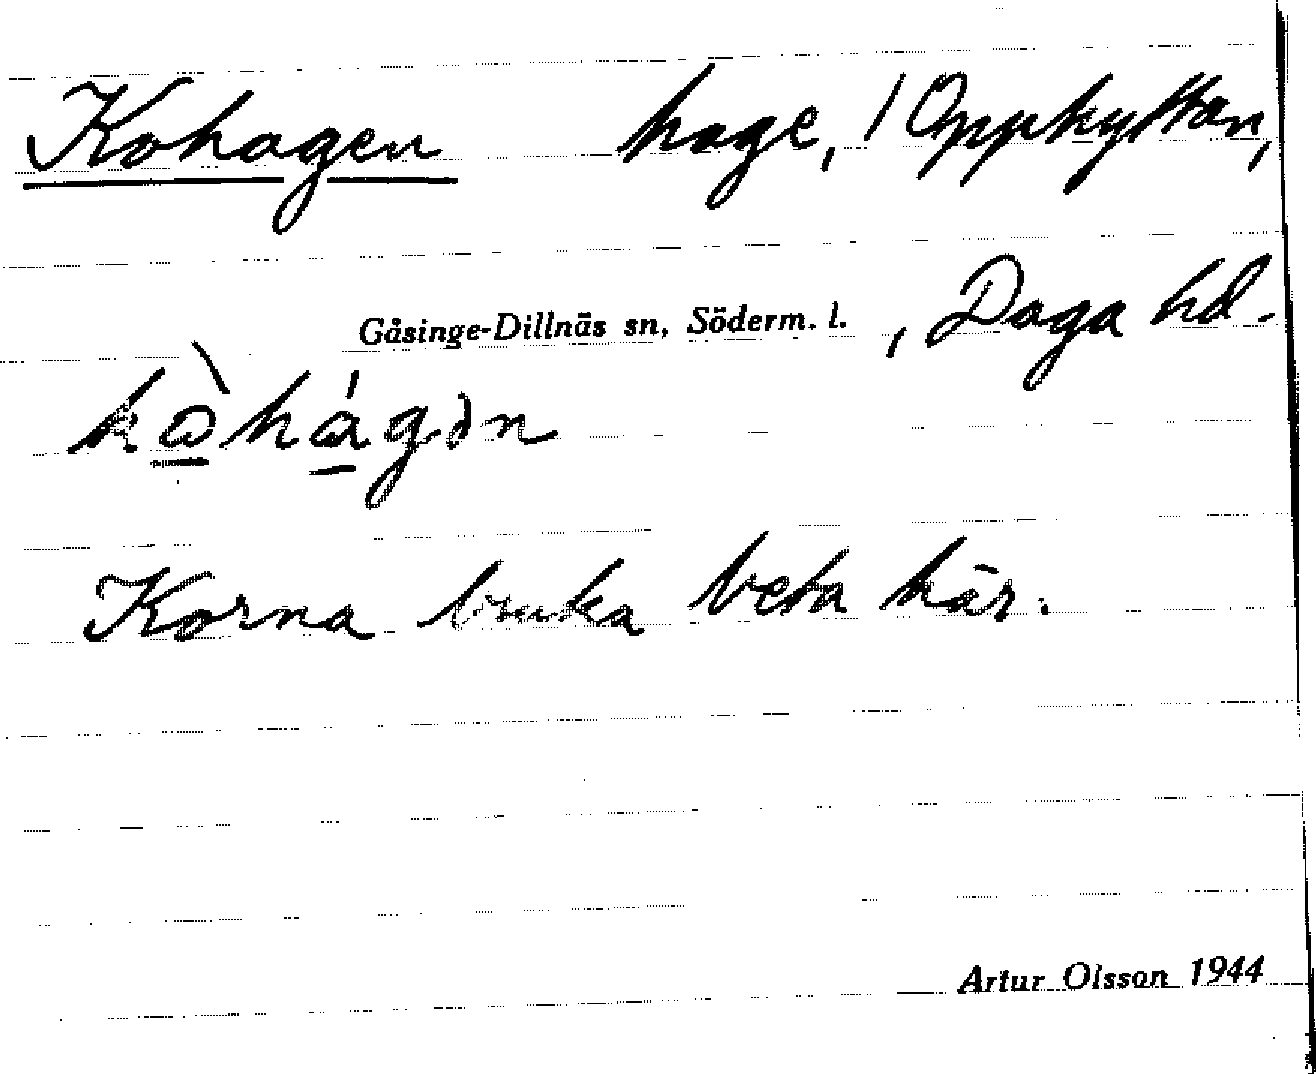 Kohagen hage, / Opphyttan,
Gåsinge-Dillnäs sn, Söderm. l. , Daga hd.
kὼhágən
Korna bruka beta här.
Artur Olsson 1944